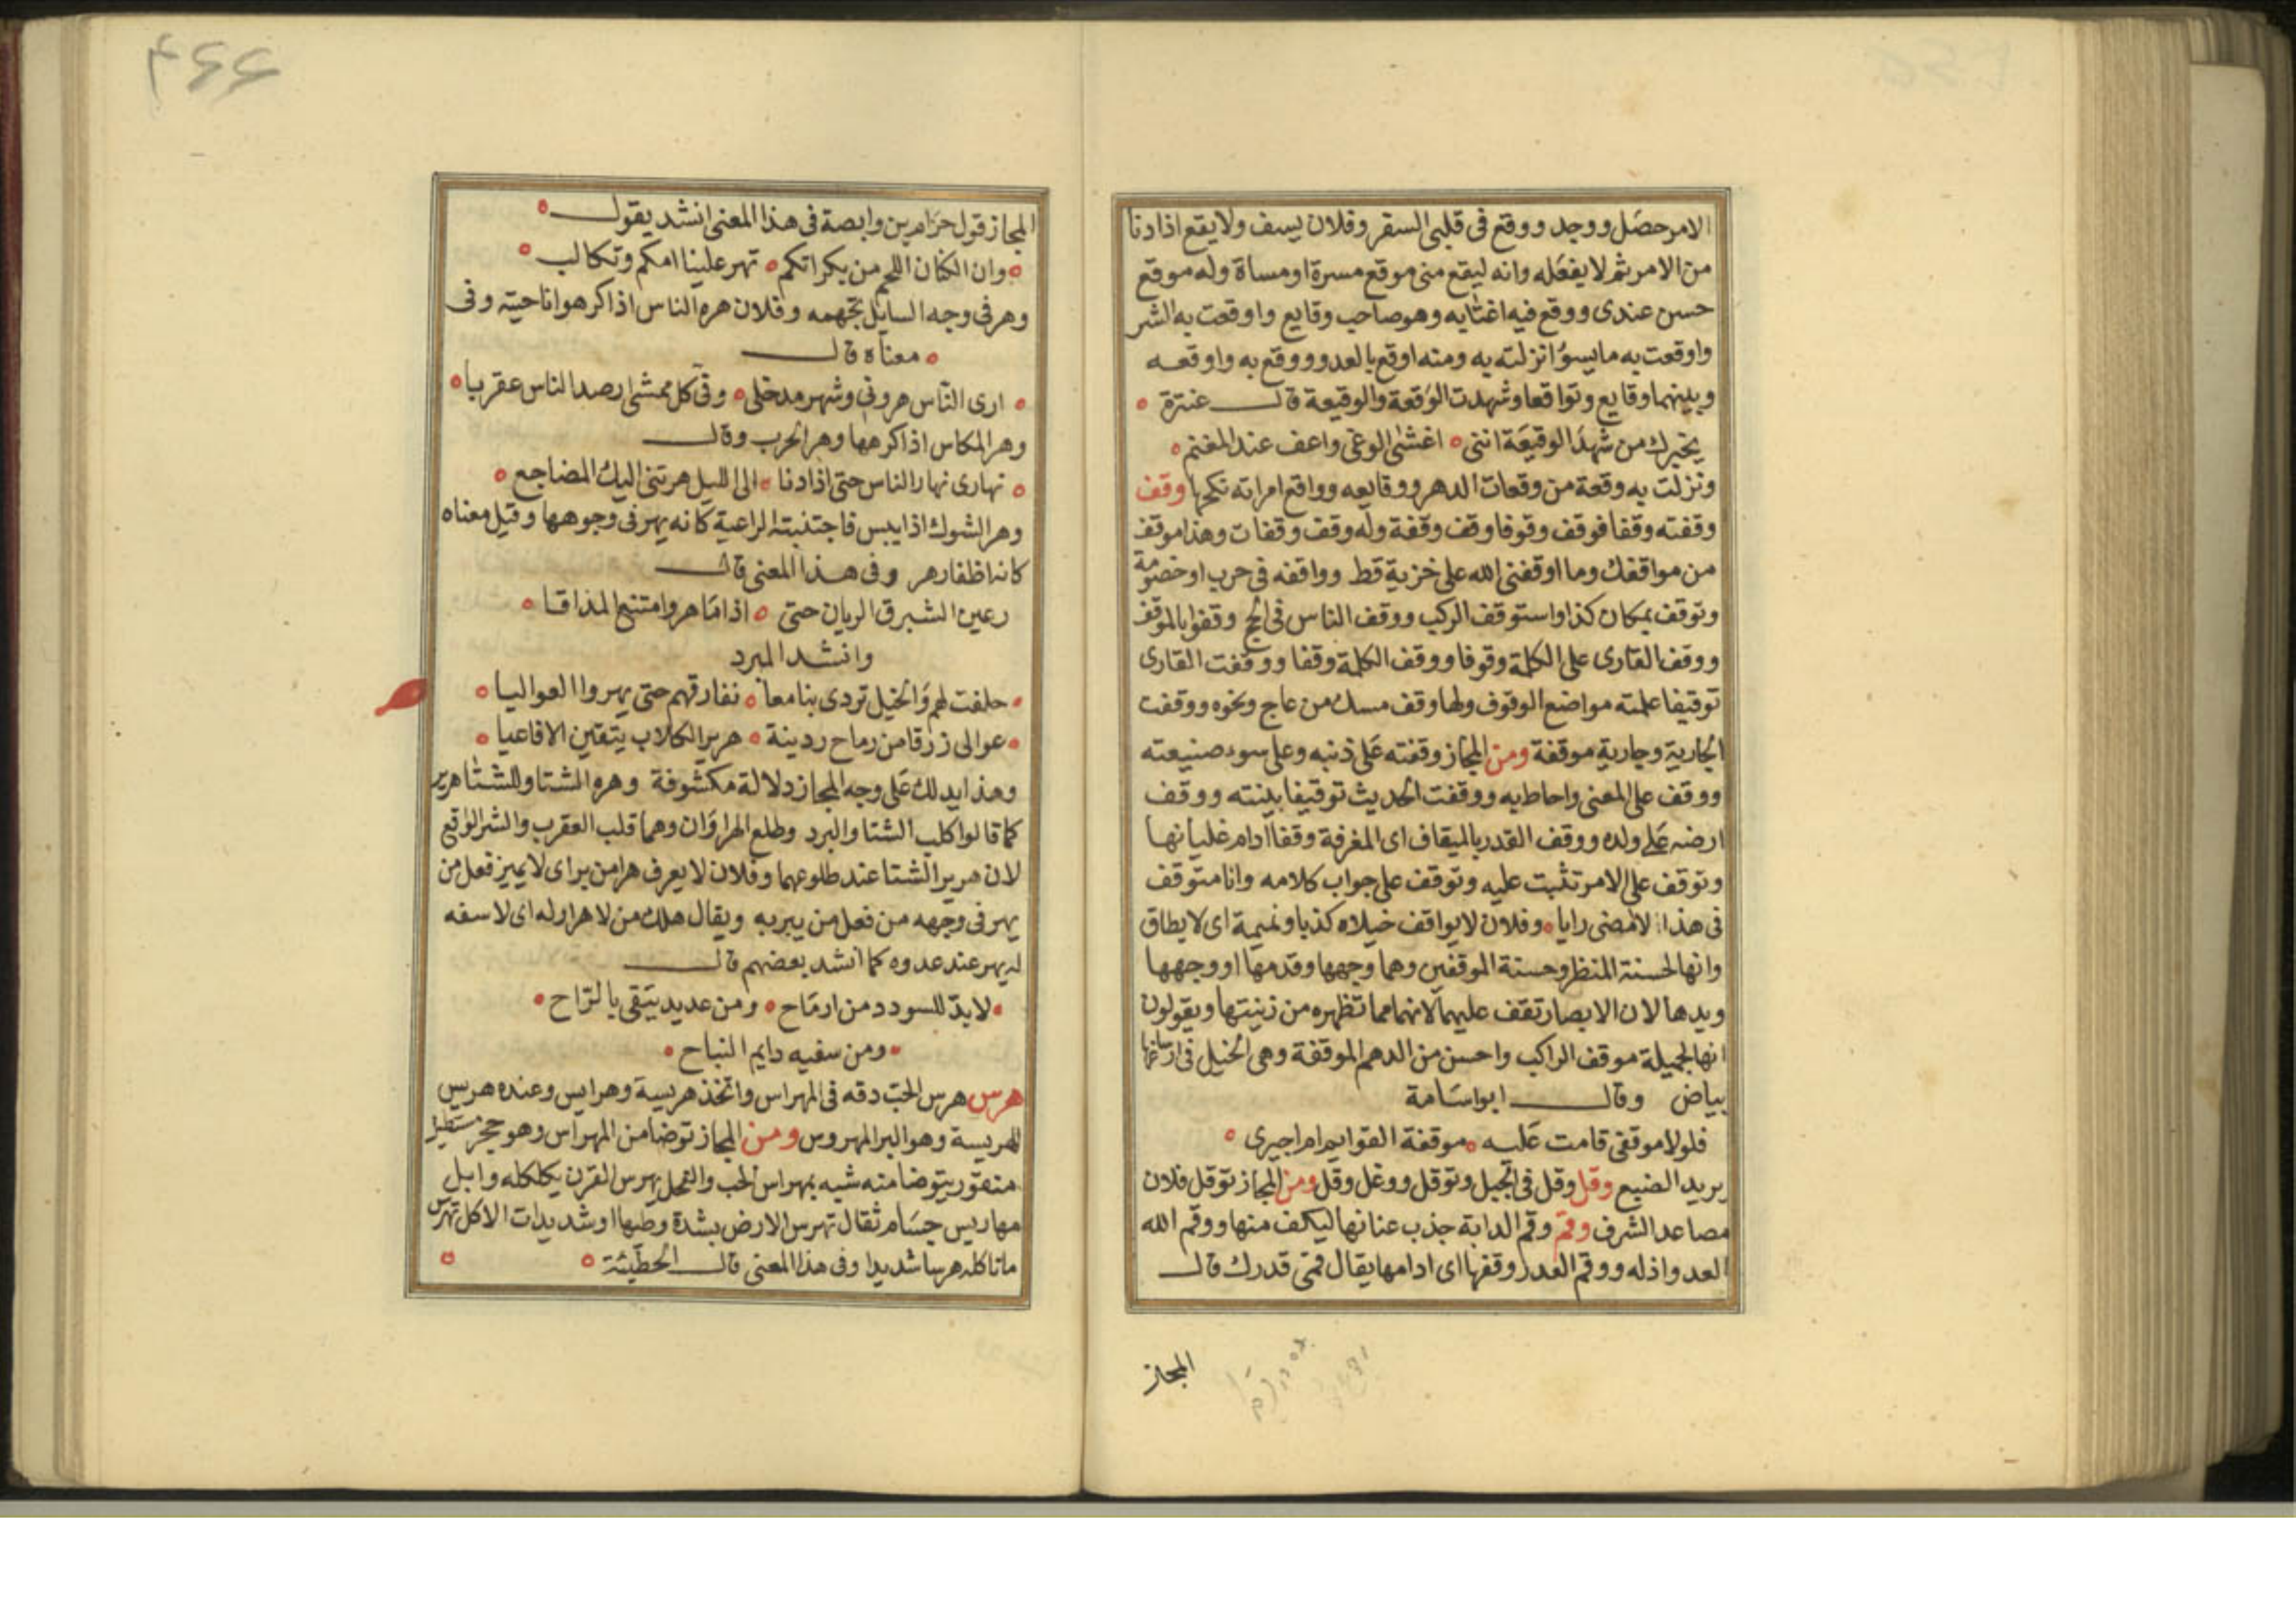 الامر حصل ووجد ووقع فى قلبى السفر وفلان يسف ولا يقع اذا دنا
من الامر ثم لا يفعله وانه ليقع منى موقع مسرة او مساة وله موقع
حسن عندى ووقع فيه اغتابه وهو صاحب وقايع واوقعت به الشر
واوقعت به ما يسوُ انزلته به ومنه اوقع بالعدو ووقع به واوقعه
وبينهما وقايع وتواقعا وشهدت الوقعة والوقيعة قال عنترة
يخبرك من شهد الوقيعة اننى اغشى الوغى واعف عند المغنم
ونزلت به وقعة من وقعات الدهر ووقايعه وواقع امراته نكحها وقف
وقفته وقفا فوقف وقوفا وقف وقفة وله وقف وقفات وهذا موقف
من مواقفك وما اوقفنى الله على خزية قط وواقفه فى حرب او خصومة
وتوقف بمكان كذا واستوقف الركب ووقف الناس فى الحج وقفوا بالموقف
ووقف القارى على الكلمة وقوفا ووقف الكلمة وقفا ووقفت القارى
توقيفا علمته مواضع الوقوف ولها وقف مسك من عاج ونحوه ووقفت
الجارية وجارية موقفة ومن المجاز وقفته على ذنبه وعلى سوء صنيعته
ووقف على المعنى واحاط به ووقفت الحديث توقيفا بينته ووقف
ارضه على ولده ووقف القدر بالميقاف اى المغرفة وقفا ادام غليانها
وتوقف على الامر تثبت عليه وتوقف على جواب كلامه وانا متوقف
فى هذا لا امضى رايا وفلان لا يواقف خيلاه كذبا ونميمة اى لا يطاق
وانها لحسنة المنظر وحسنة الموقفين وهما وجهها وقدمها او وجهها
ويدها لان الابصار تقف عليهما لانهما مما تظهره من زينتها ويقولون
انها لجميلة موقف الراكب واحسن من الدهم الموقفة وهى الخيل فى ارساغها
بياض وقال ابو اسامة
فلولا موقفى قامت عليه موقفة القوايم ام اجرى
يريد الضبع وقل وقل فى الجبل وتوقل ووغل وقل ومن المجاز توقل فلان
مصاعد الشرف وقم وقم الدابة جذب عنانها ليكف منها ووقم الله
العدو اذله ووقم القدر وقفها اى ادامها يقال قمى قدرك قال
المجاز
المجاز قول حزام بن وابصة فى هذا المعنى انشد يقول
وان الكنان اللحم من بكراتكم تهر علينا امكم وتكالب
وهر فى وجه السايل تجهمه وفلان هره الناس اذا كرهوا ناحيته وفى
معناه قال
ارى الناس هرونى وشهر مدخلى وفى كل ممشى ارصد الناس عقربا
وهر المكاس اذا كرهها وهر الحرب وقال
نهارى نهار الناس حتى اذا دنا الى الليل هرتنى اليك المضاجع
وهر الشوك اذا يبس فاجتنبته الراعية كانه يهر فى وجوهها وقيل معناه
كانه اظفار هر وفى هذا المعنى قال
رعين الشبرق الريان حتى اذا ما هر وامتنع المذاقا
وانشد المبرد
حلفت لهم والخيل تردى بنا معا نفارقهم حتى يهروا العواليا
عوالى زرقا من رماح ردينة هرير الكلاب يتقين الافاعيا
وهذا يدلك على وجه المجاز دلالة مكشوفة وهره الشتا وللشتا هرير
كما قالوا كلب الشتا والبرد وطلع الهراوان وهما قلب العقرب والنسر الواقع
لان هرير الشتا عند طلوعهما وفلان لا يعرف هرا من بر اى لا يميز فعل من
يهر فى وجهه من فعل من يبر به ويقال هلك من لا هرار له اى لا سفه
له يهر عند عدوه كما انشد بعضهم قال
لا بد للسودد من ارماح ومن عديد يتقى بالراح
ومن سفيه دايم النباح
هرس هرس الحب دقه فى المهراس واتخذ هريسة وهرايس وعنده هريس
للهريسة وهو البر المهروس ومن المجاز توضا من المهراس وهو حجر مستطيل
منقور يتوضا منه شبه بمهراس الحب والفحل يهرس القرن بكلكله وابل
مهاريس جسام ثقال تهرس الارض بشدة وطيها او شديدات الاكل تهرس
ما تاكله هرسا شديدا وفى هذا المعنى قال الحطيئة